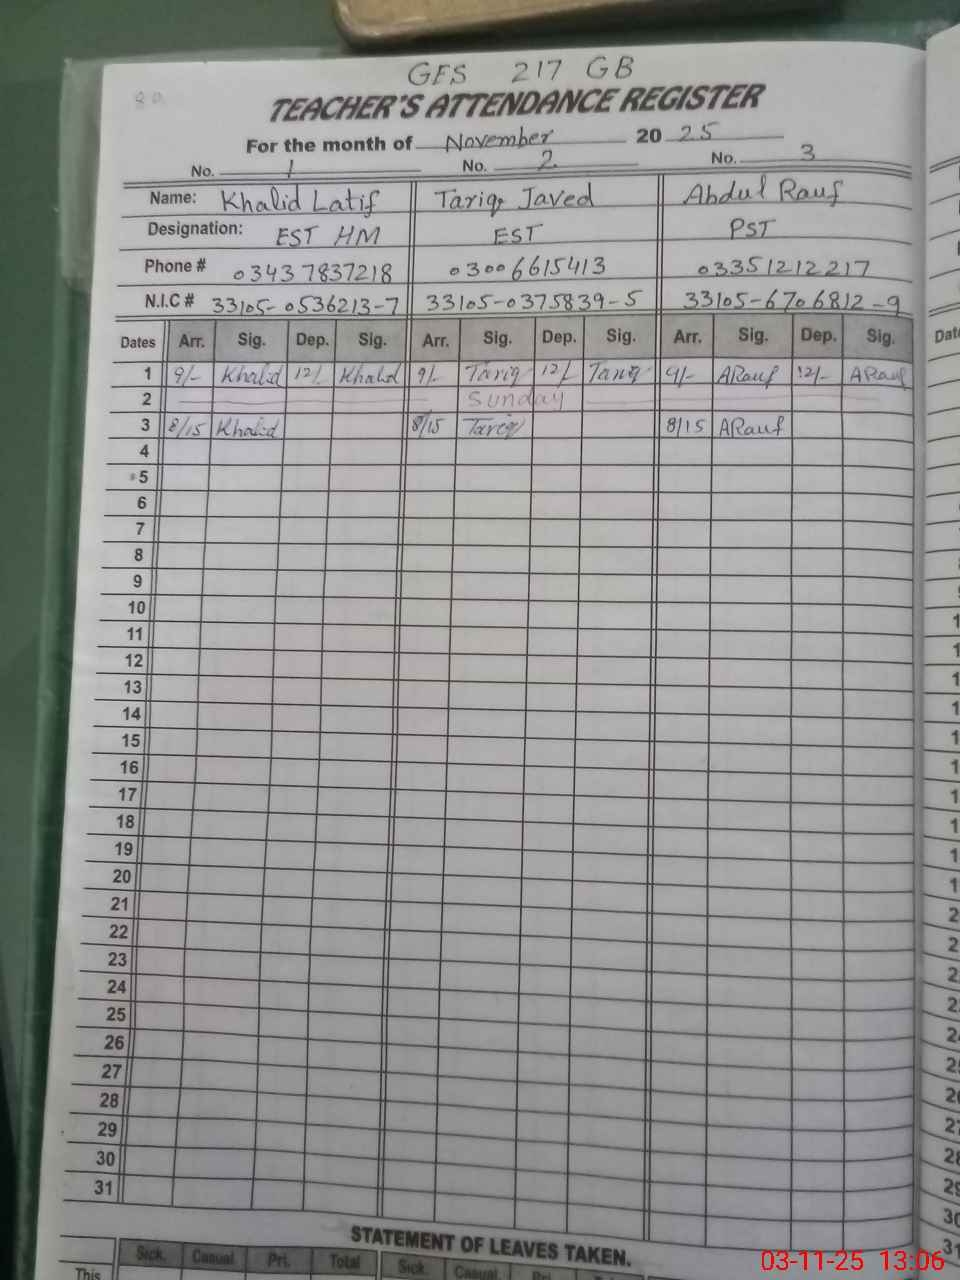 GES 217 GB
TEACHER'S ATTENDANCE REGISTER
For the month of November 20 25
No. 1 No. 2 No. 3
Name: Khalid Latif Tariq Javed Abdul Rauf
Designation: EST HM EST PST
Phone # 03437837218 03006615413 03351212217
N.I.C # 33105-0536213-7 33105-0375839-5 33105-6706812-9
Dates Arr. Sig. Dep. Sig. Arr. Sig. Dep. Sig. Arr. Sig. Dep. Sig.
1 9/- Khalid 12/- Khalid 9/- Tariq 12/- Tariq 9/- ARauf 12/- ARauf
2 Sunday
3 8/15 Khalid 8/15 Tariq 8/15 ARauf
4
5
6
7
8
9
10
11
12
13
14
15
16
17
18
19
20
21
22
23
24
25
26
27
28
29
30
31
STATEMENT OF LEAVES TAKEN.
Sick. Casual Pri. Total Sick. Casual
This
03-11-25 13:06